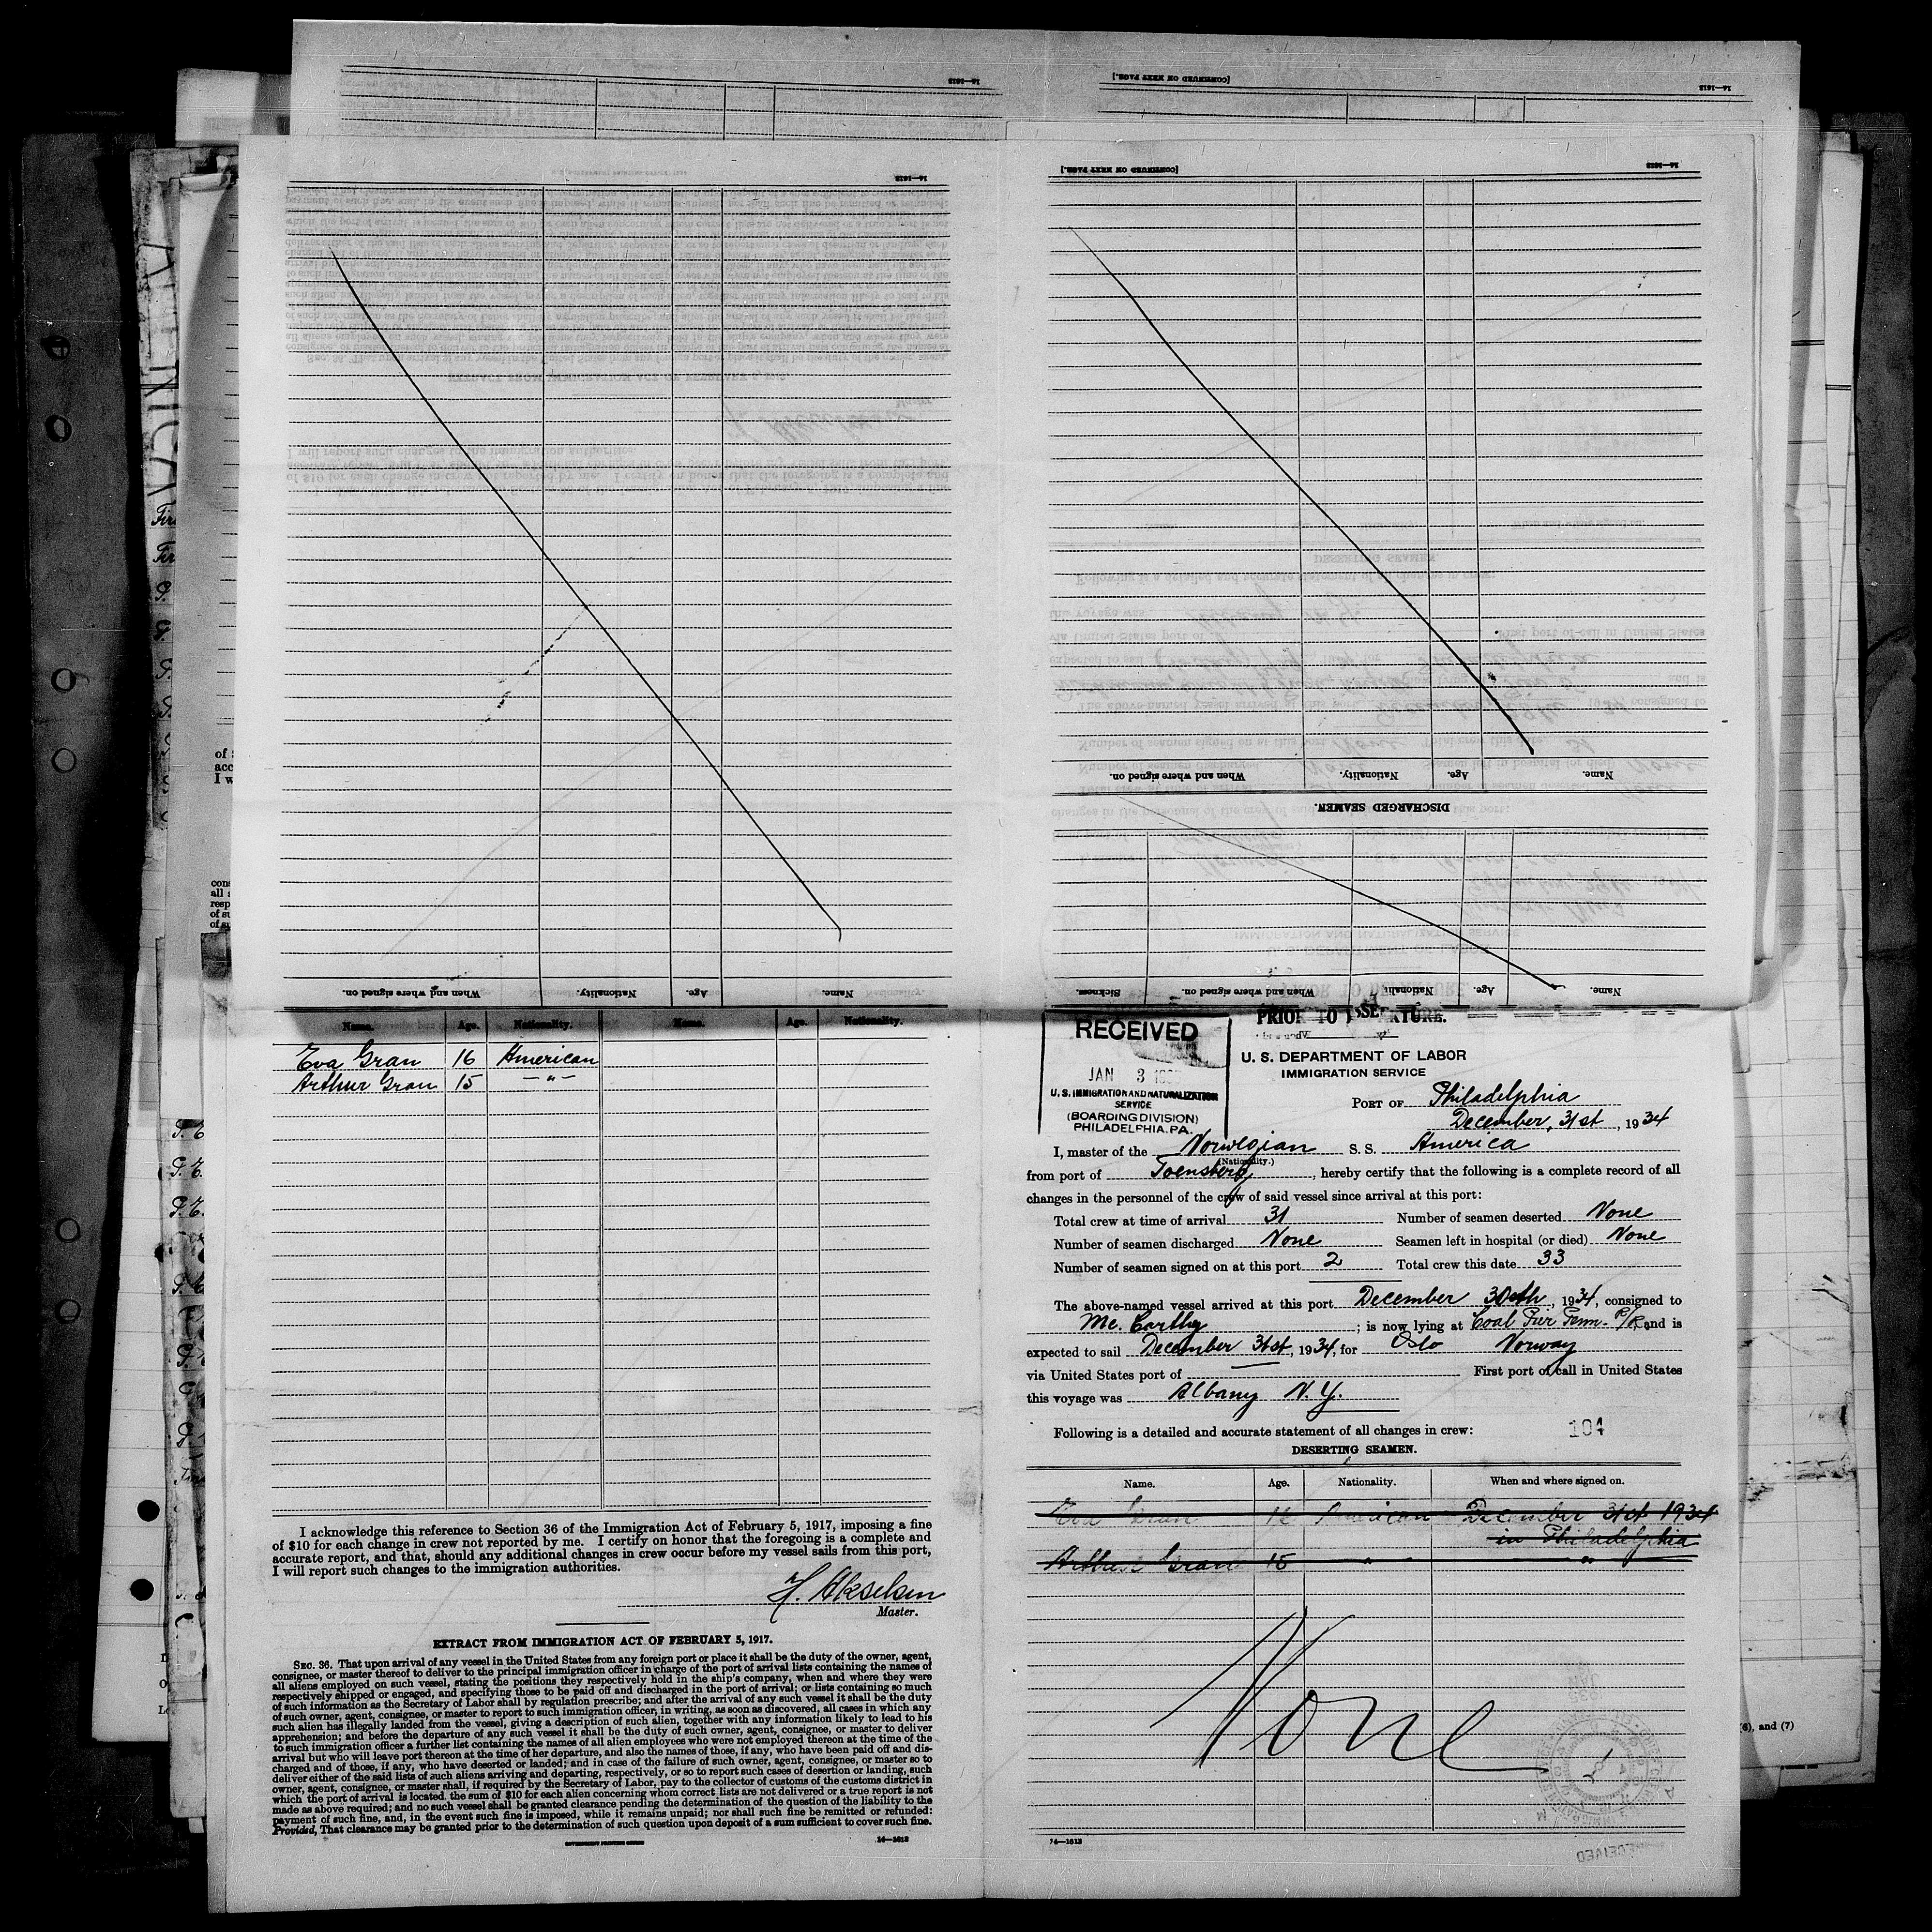 14—1613
[CONTINUED ON NEXT PAGE.]
14—1613
14—1613
[CONTINUED ON NEXT PAGE.]
14—1613
Name. Age. Nationality. When and where signed on.
DISCHARGED SEAMEN.
Name. Age. Nationality. When and where signed on. Sickness.
Name. Age. Nationality. When and where signed on.
Name. Age. Nationality. Name. Age. Nationality.
Eva Gran 16 American
Arthur Gran 15 —"—
I acknowledge this reference to Section 36 of the Immigration Act of February 5, 1917, imposing a fine
of $10 for each change in crew not reported by me. I certify on honor that the foregoing is a complete and
accurate report, and that, should any additional changes in crew occur before my vessel sails from this port,
I will report such changes to the immigration authorities.
H. Akselsen
Master.
EXTRACT FROM IMMIGRATION ACT OF FEBRUARY 5, 1917.
SEC. 36. That upon arrival of any vessel in the United States from any foreign port or place it shall be the duty of the owner, agent,
consignee, or master thereof to deliver to the principal immigration officer in charge of the port of arrival lists containing the names of
all aliens employed on such vessel, stating the positions they respectively hold in the ship's company, when and where they were
respectively shipped or engaged, and specifying those to be paid off and discharged in the port of arrival; or lists containing so much
of such information as the Secretary of Labor shall by regulation prescribe; and after the arrival of any such vessel it shall be the duty
of such owner, agent, consignee, or master to report to such immigration officer, in writing, as soon as discovered, all cases in which any
such alien has illegally landed from the vessel, giving a description of such alien, together with any information likely to lead to his
apprehension; and before the departure of any such vessel it shall be the duty of such owner, agent, consignee, or master to deliver
to such immigration officer a further list containing the names of all alien employees who were not employed thereon at the time of the
arrival but who will leave port thereon at the time of her departure, and also the names of those, if any, who have been paid off and dis-
charged and of those, if any, who have deserted or landed; and in case of the failure of such owner, agent, consignee, or master so to
deliver either of the said lists of such aliens arriving and departing, respectively, or so to report such cases of desertion or landing, such
owner, agent, consignee, or master shall, if required by the Secretary of Labor, pay to the collector of customs of the customs district in
which the port of arrival is located the sum of $10 for each alien concerning whom correct lists are not delivered or a true report is not
made as above required; and no such vessel shall be granted clearance pending the determination of the question of the liability to the
payment of such fine, and, in the event such fine is imposed, while it remains unpaid; nor shall such fine be remitted or refunded:
Provided, That clearance may be granted prior to the determination of such question upon deposit of a sum sufficient to cover such fine.
GOVERNMENT PRINTING OFFICE 14—1613
RECEIVED
JAN 3
U. S. IMMIGRATION AND NATURALIZATION
SERVICE
(BOARDING DIVISION)
PHILADELPHIA, PA.
PRIOR TO
U. S. DEPARTMENT OF LABOR
IMMIGRATION SERVICE
PORT OF Philadelphia
December, 31st, 1934
I, master of the Norwegian S. S. America
(Nationality.)
from port of Toensberg, hereby certify that the following is a complete record of all
changes in the personnel of the crew of said vessel since arrival at this port:
Total crew at time of arrival 31 Number of seamen deserted None
Number of seamen discharged None Seamen left in hospital (or died) None
Number of seamen signed on at this port 2 Total crew this date 33
The above-named vessel arrived at this port December 30th, 1934, consigned to
Mc. Carthy; is now lying at Coal Pier Penn. and is
expected to sail December 31st, 1934, for Oslo Norway
via United States port of — First port of call in United States
this voyage was Albany N. Y.
Following is a detailed and accurate statement of all changes in crew: 104
DESERTING SEAMEN.
Name. Age. Nationality. When and where signed on.
Eva Gran 16 American December 31st 1934
in Philadelphia
Arthur Gran 15 " "
None
14—1613
RECEIVED
(6), and (7)